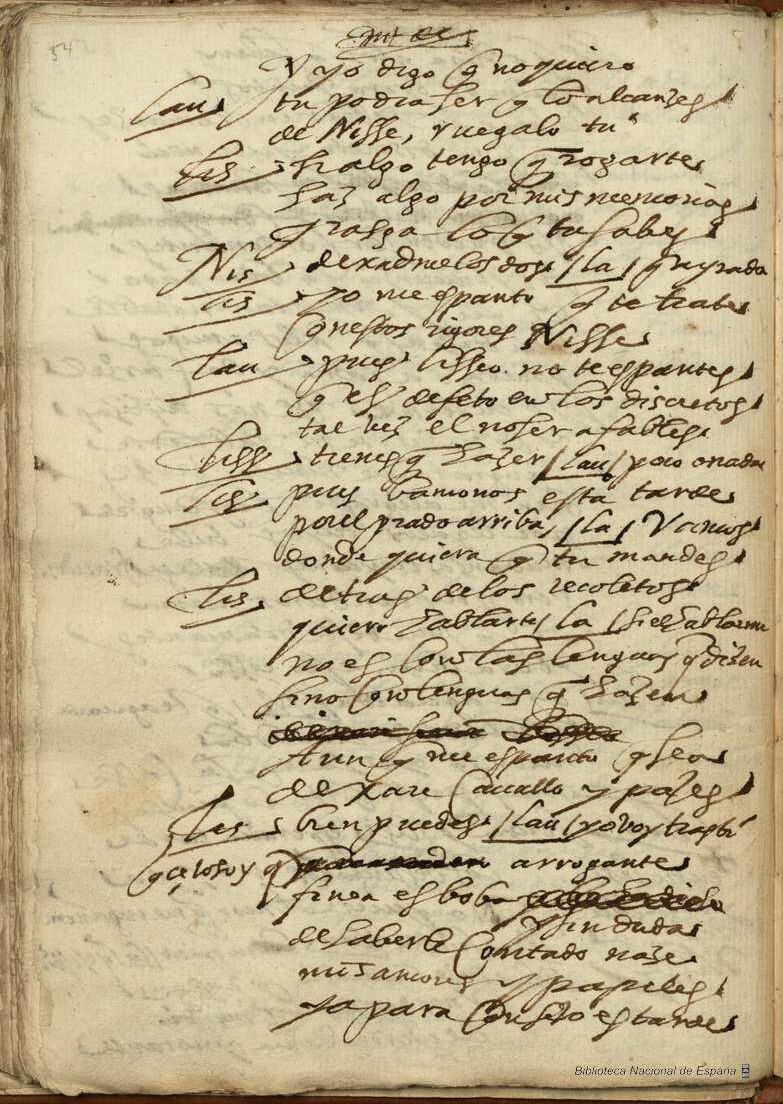 54
y yo digo q no quiero
lau tu podra ser q lo alcanzes
de Nisse, ruegalo tu
lis si algo tengo q rogarte
haz algo por mis memorias
y rasga lo q tu sabes
Nis dexadme los dos / la / q ayrada
lis yo me espanto q te trate
con estos rigores Nisse
lau pues lisseo no te espantes
q es defeto en los discretos
tal vez el no ser afables
liss tienes q hazer / lau / poco o nada
lis pues bamonos esta tarde
por el prado arriba / la / Vamos
donde quiera q tu mandes
lis detras de los recoletos
quiero hablarte / la / si el hablarme
no es con las lenguas q dizen
sino con lenguas q hazen
Aun q me espanto q sea
dexare cavallo y pajes
lis bien puedes / lau / yo voy tras ti
q celoso y q arrogante
finea es boba y sin duda
de haberle contado naze
mis amores y papeles
ya para consejo es tarde
Biblioteca Nacional de España